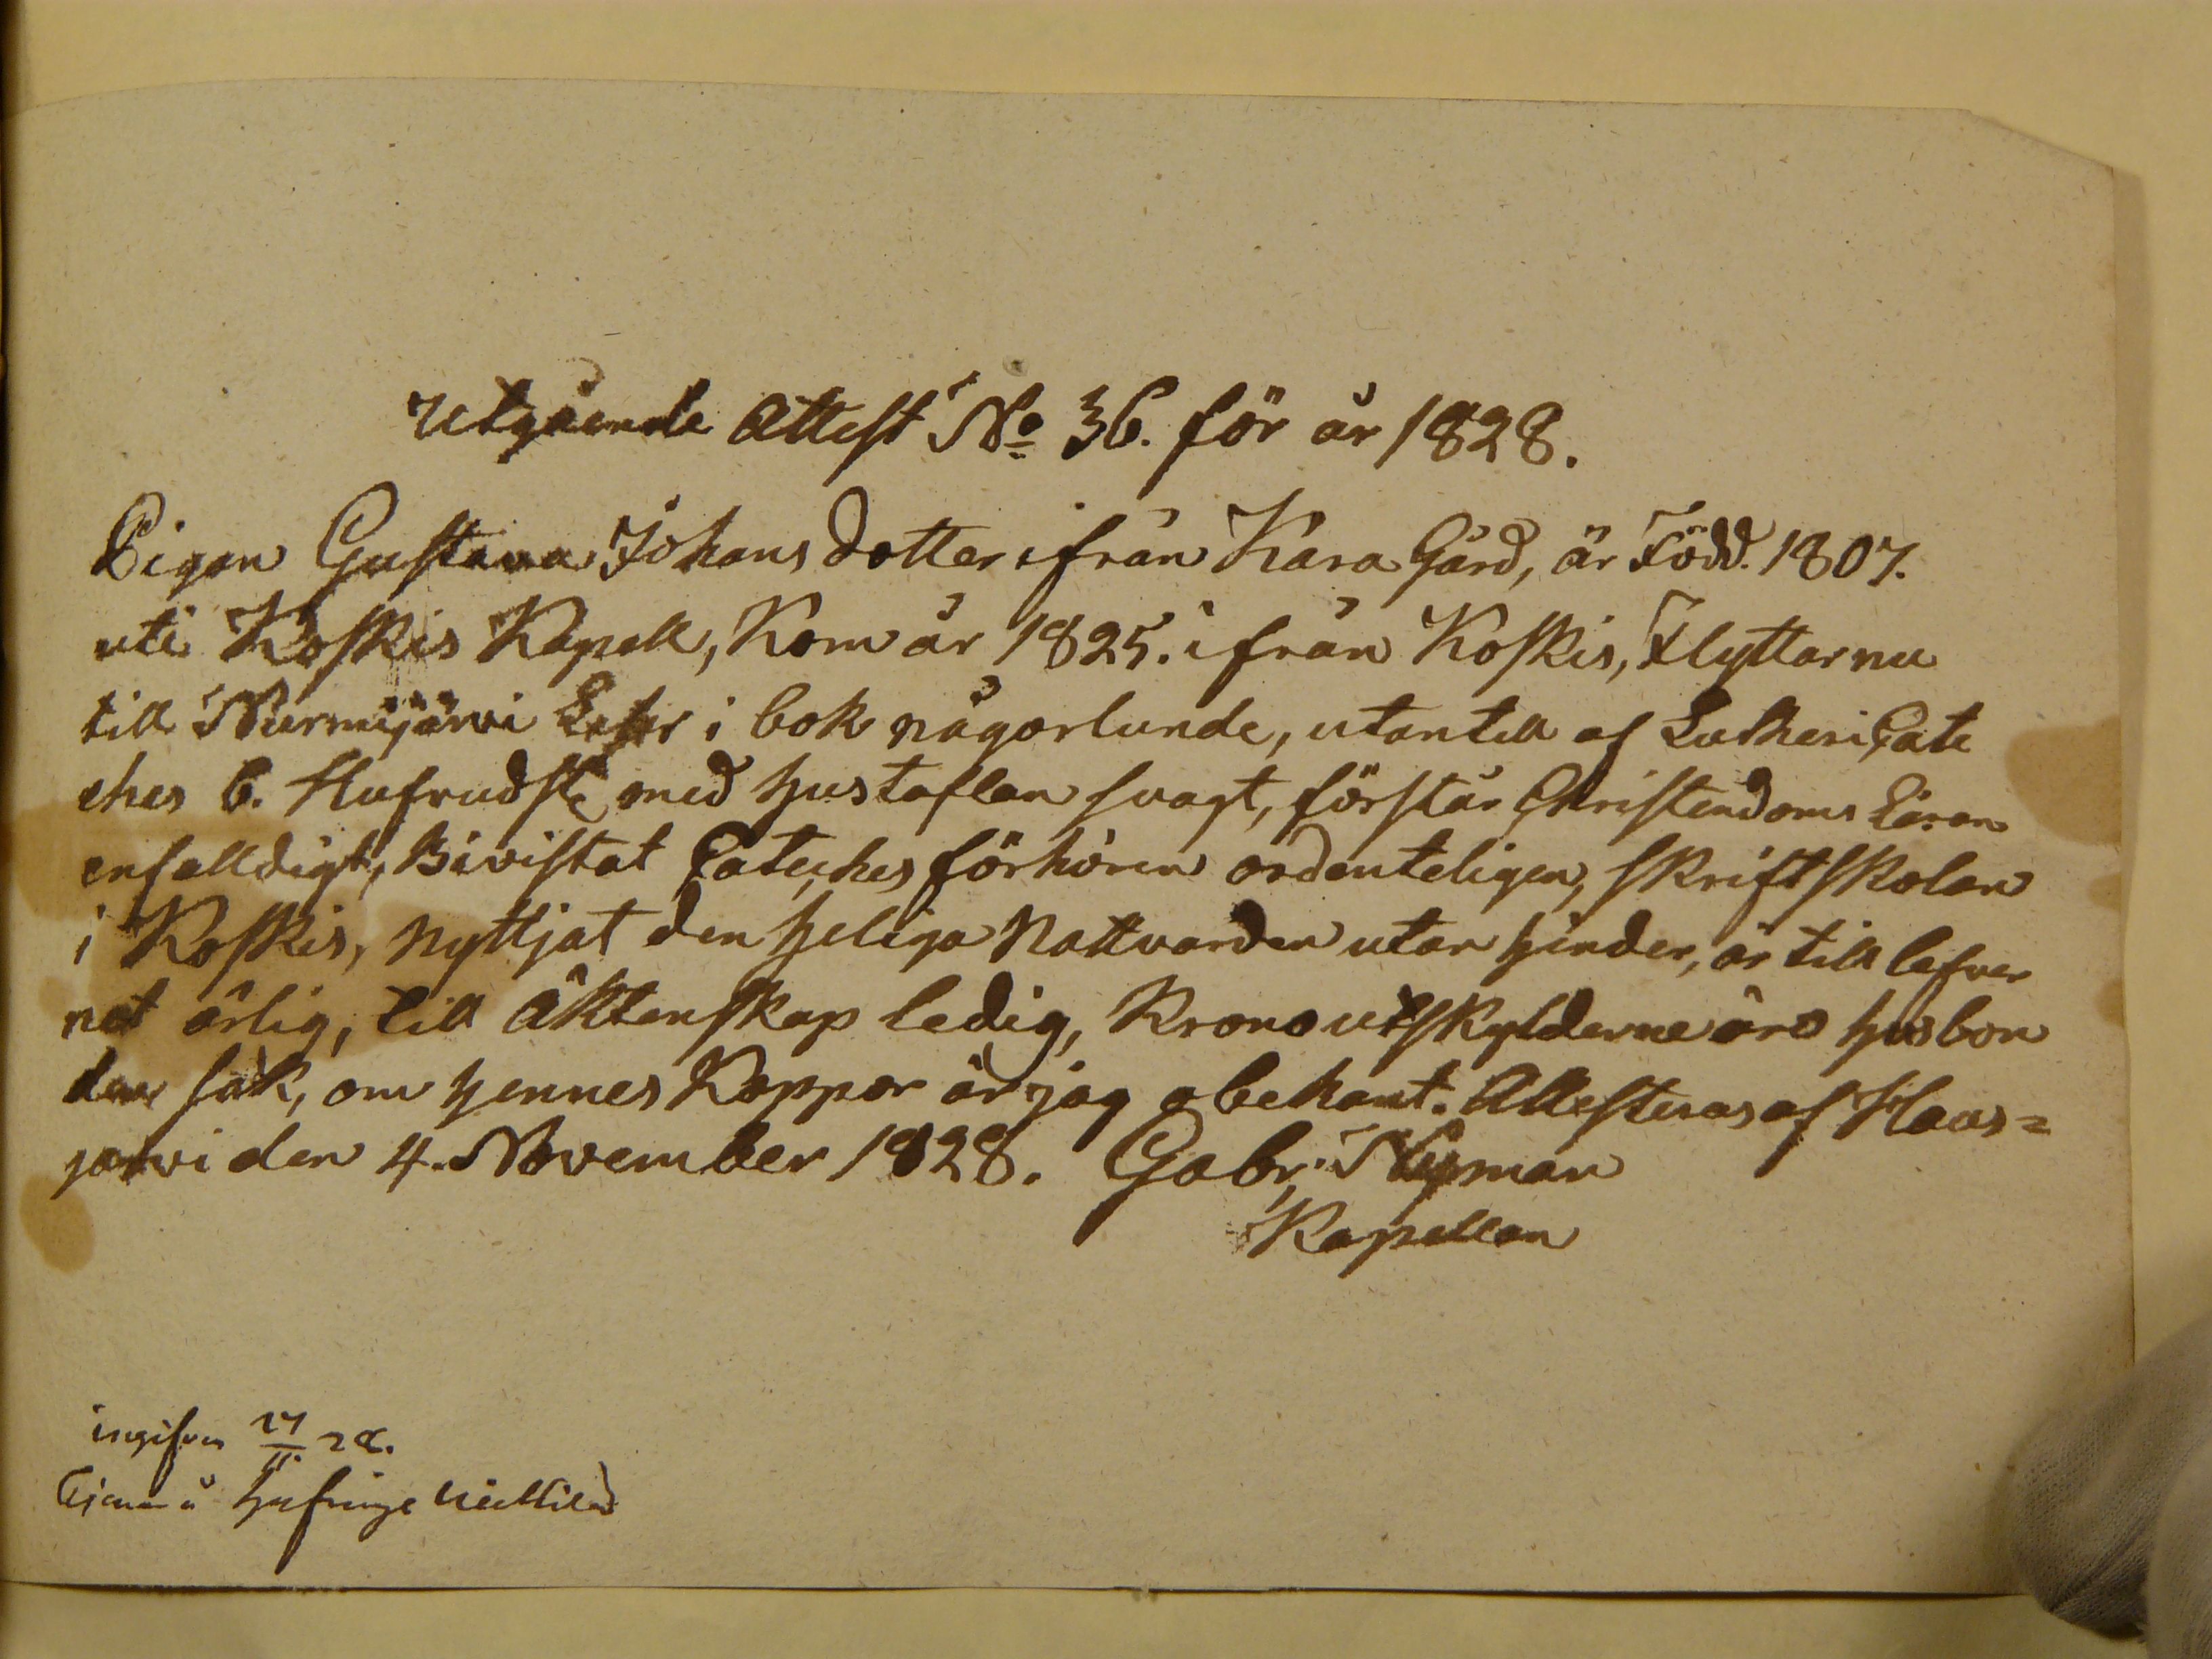 Utgående Attest No 36. för år 1828.
Pigan Gustava Johans dotter ifrån Kara Gård, är Född. 1807.
uti Koskis Kapell, Kom år 1825. ifrån Koskis, Flyttar nu
till Nurmijärvi Läser i bok någorlunde, utantill af Lutheri Cate
ches 6. Hufvudste med Hustaflan svagt, förstår Christendoms Läran
enfalldigt, Bivistat Cateches förhören ordenteligen, skriftskolan
i Koskis, nyttjat den Heliga Nattvarden utan hinder, är till lefver
net ärlig, till Äktenskap ledig, Krono utskylderne äro husbon
dens sak, om hennes Koppor är jag obekant. Attesteras af Haus=
jarvi den 4. November 1828. Gabr. Nyman
Kapellan
ingifven 27/11. 28.